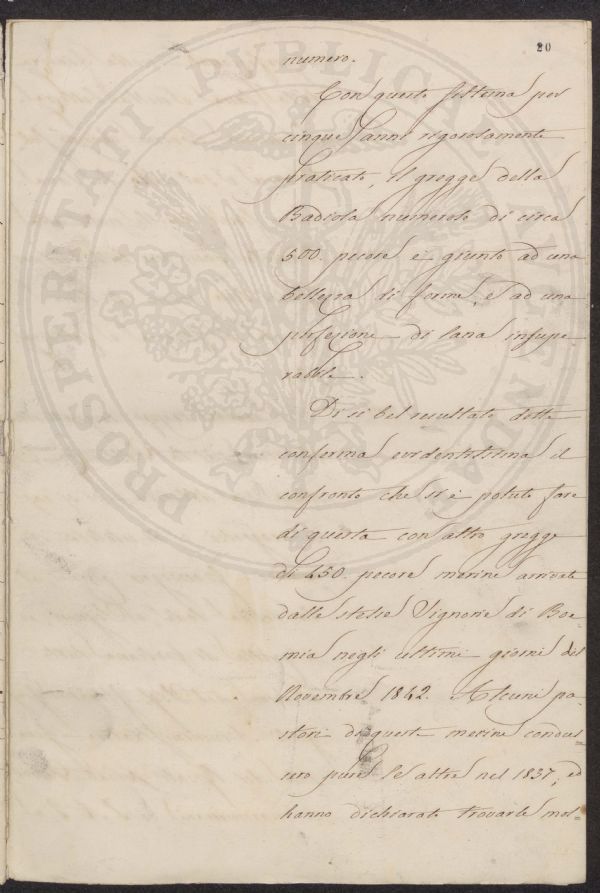 20
numero.
Con questo sistema per
cinque anni rigorosamente
praticato, il gregge della
Badiola numeroso di circa
500. pecore è giunto ad una
bellezza di forme, e ad una
perfezione di lana insupe
rabile.
Di sì bel resultato dette
conferma evidentissima il
confronto che si è potuto fare
di questa con altro gregge
di 450. pecore merine arrivate
dalle stesse Signorie di Boe=
mia negli ultimi giorni del
Novembre 1842. Alcuni pa=
stori di queste merine condus=
sero pure le altre nel 1837, ed
hanno dichiarato trovarle mol=
PROSPERITATI PUBLICAE AUGENDAE